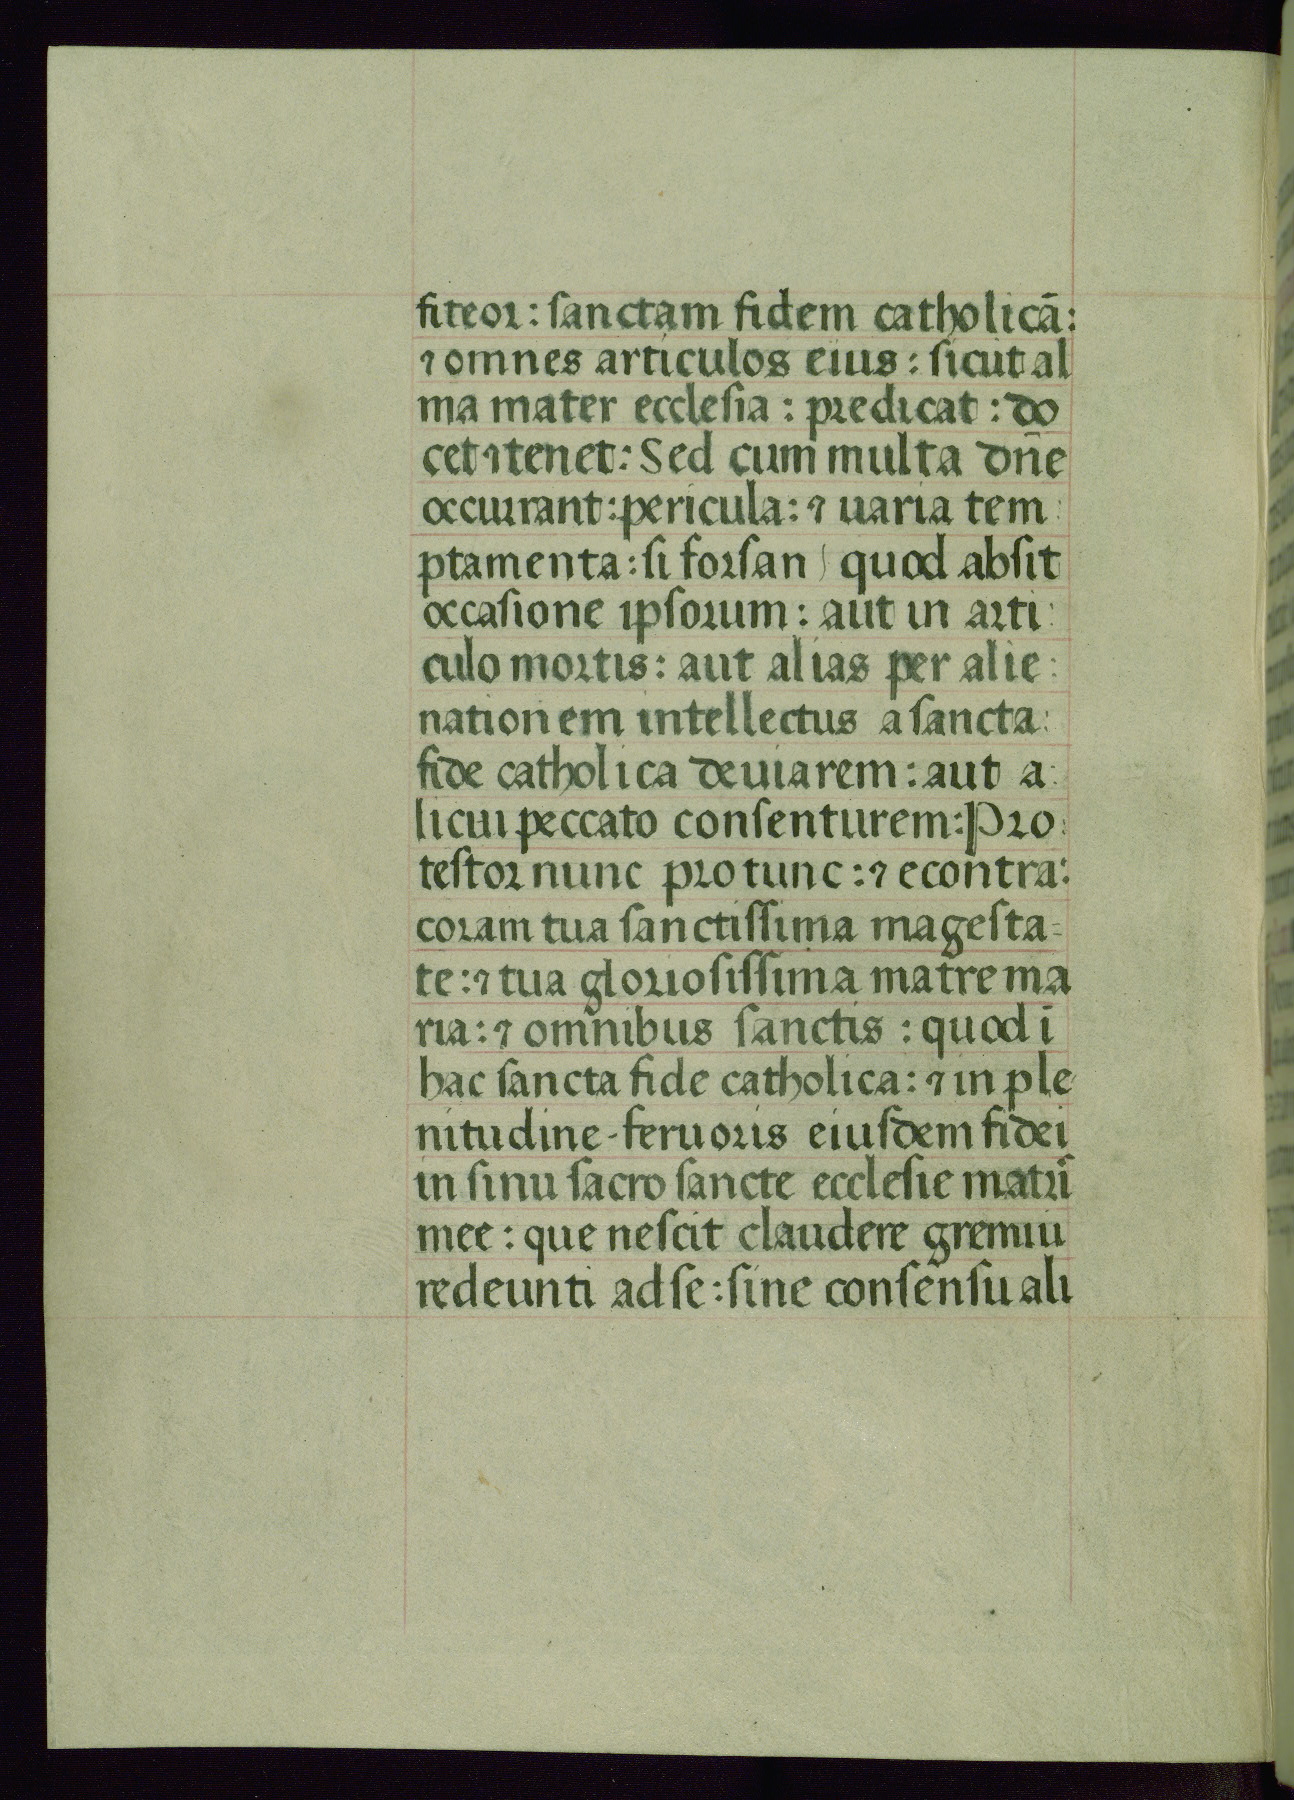 fiteor: sanctam fidem catholicā:
⁊ omnes articulos eius: sicut al
ma mater ecclesia: predicat: do
cet ⁊ tenet: Sed cum multa dn̄e
occurrant: pericula: ⁊ uaria tem:
ptamenta: si forsan) quod absit
occasione ipsorum: aut in arti:
culo mortis: aut alias per alie:
nationem intellectus a sancta:
fide catholica deuiarem: aut a:
licui peccato consenturem: Pro:
testor nunc pro tunc: ⁊ econtra:
coram tua sanctissima magesta=
te: ⁊ tua gloriosissima matre ma
ria: ⁊ omnibus sanctis: quod ī
hac sancta fide catholica: ⁊ in ple
nitudine-feruoris eiusdem fidei
in sinu sacro sancte ecclesie matris
mee: que nescit claudere gremiū
redeunti ad se: sine consensu ali